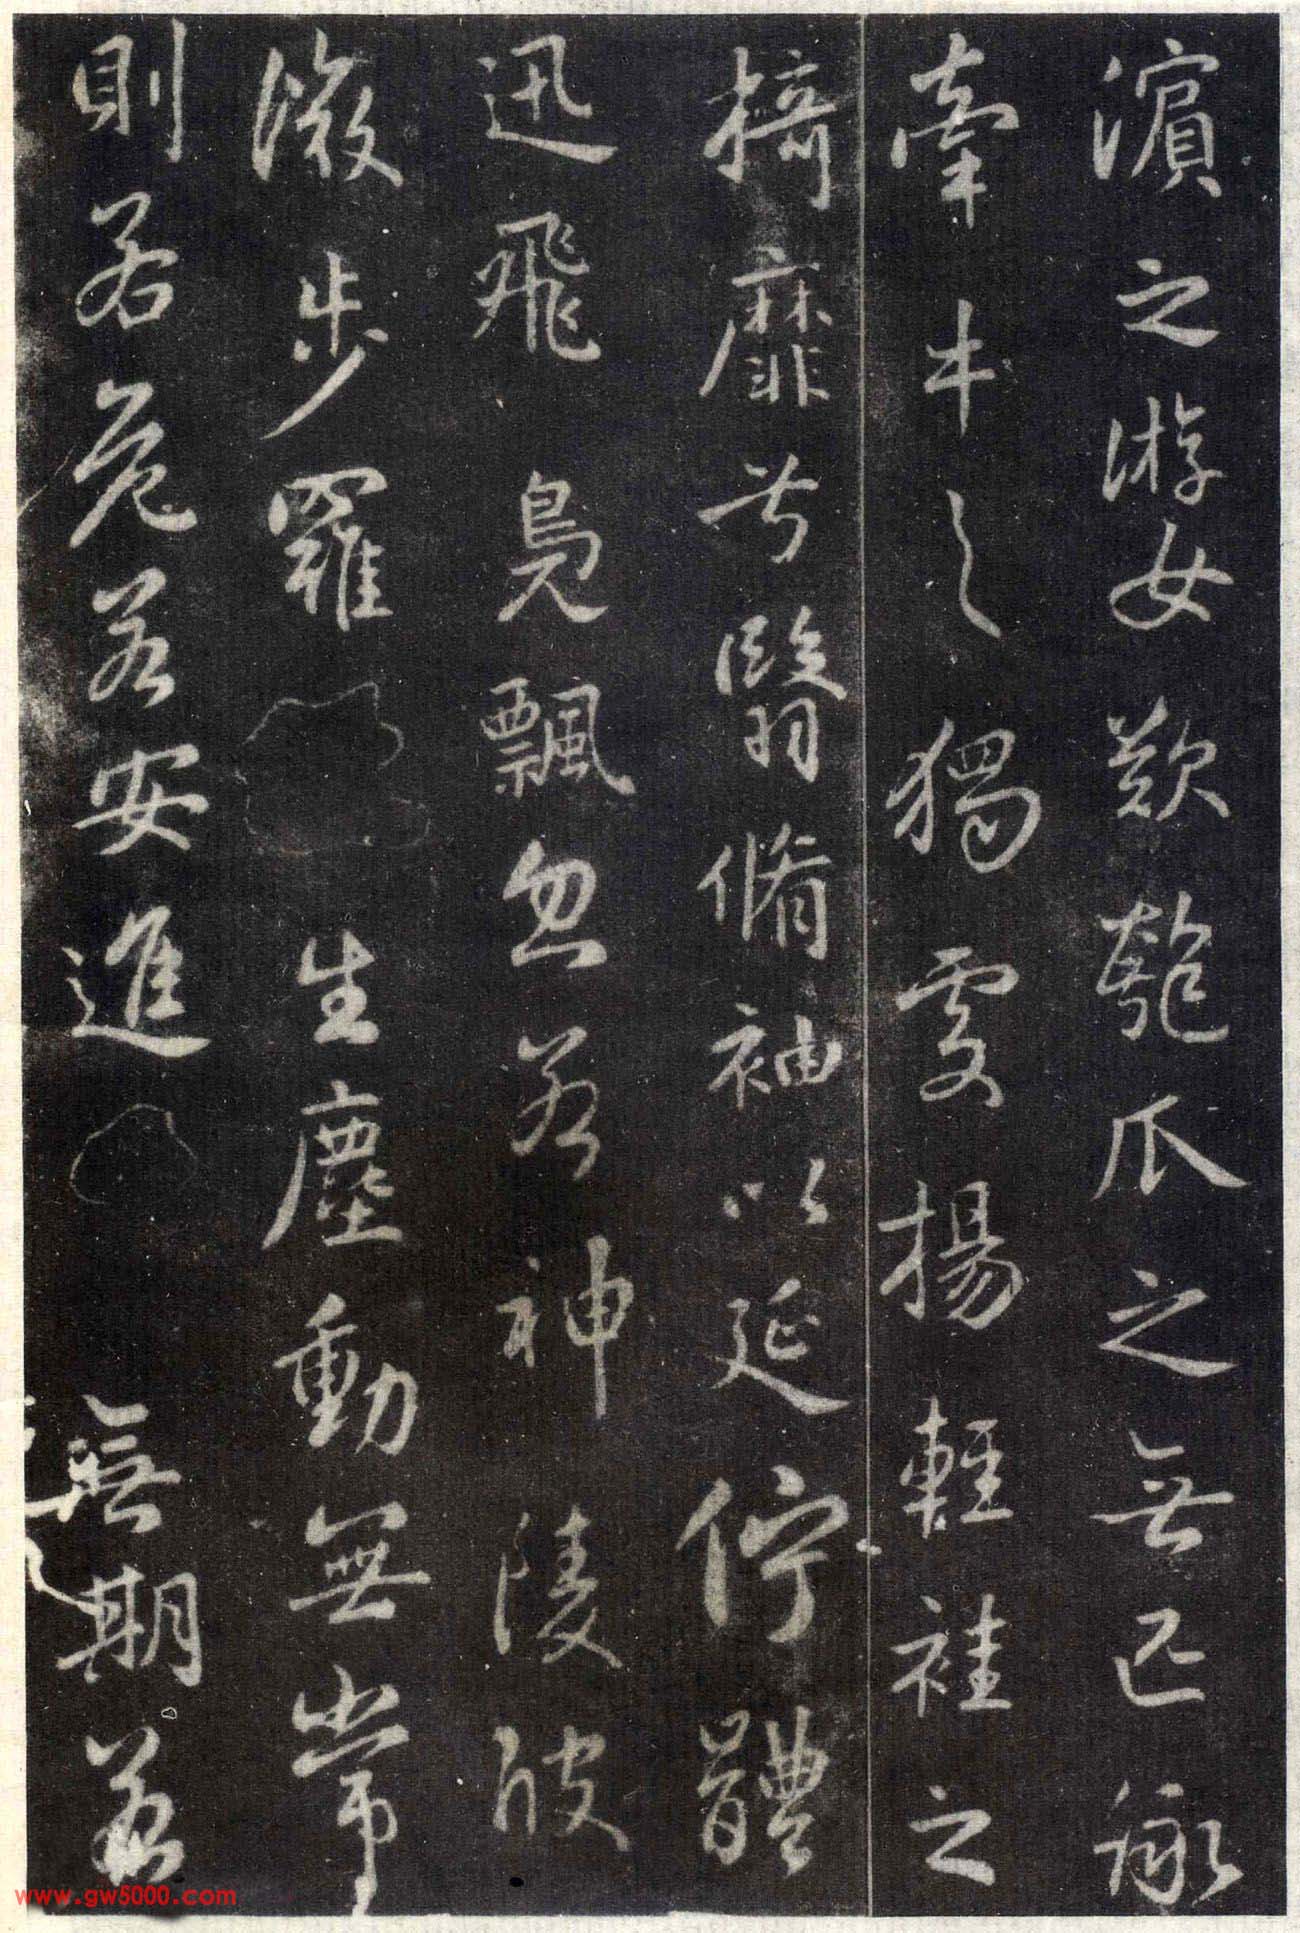 濱之游女歎匏瓜之無匹詠
牽牛之獨處揚輕袿之
掎靡兮翳脩袖以延佇體
迅飛鳧飄忽若神陵波
微步羅生塵動無常
則若危若安進無期若
www.gw5000.com